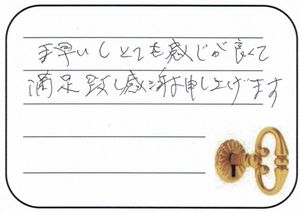 手早いしとても感じが良くて
満足致し感謝お申し上げます